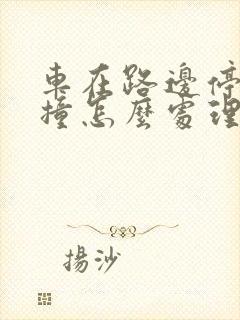 車在路邊停
撞怎麼處理
揚沙